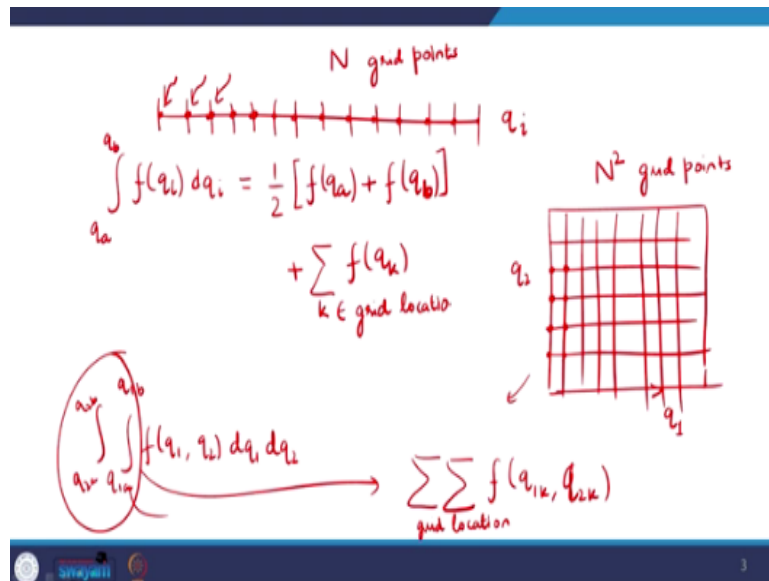 N grid points
q_i
∫_{q_a}^{q_b} f(q_i) dq_i = 1/2 [f(q_a) + f(q_b)]
+ ∑_{k ∈ grid locatio} f(q_k)
N² grid points
q_2
q_1
∫ ∫_{q_{1a}}^{q_{1b}} f(q_1, q_2) dq_1 dq_2
∑∑_{grid location} f(q_{1k}, q_{2k})
swayam
3